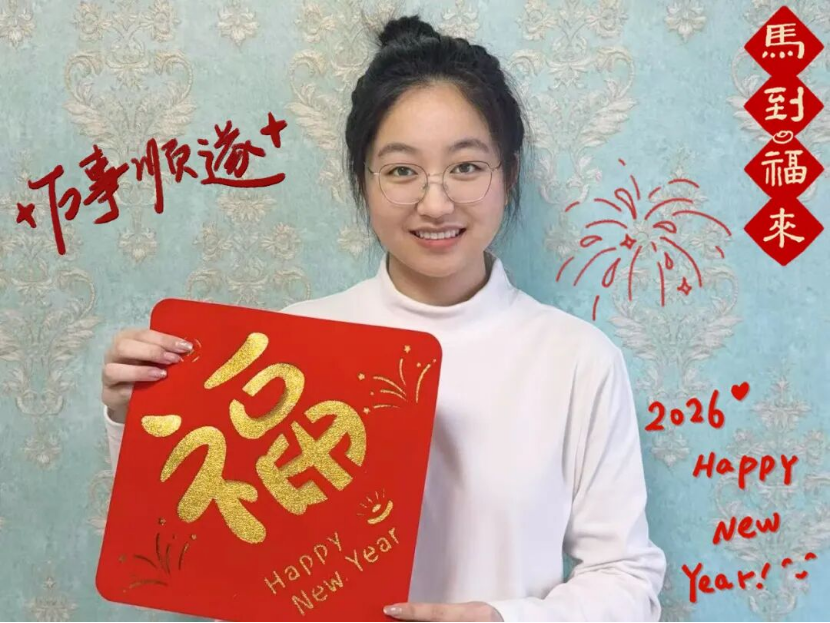 万事顺遂
馬到福來
福
Happy
New Year
2026
Happy
New
Year!